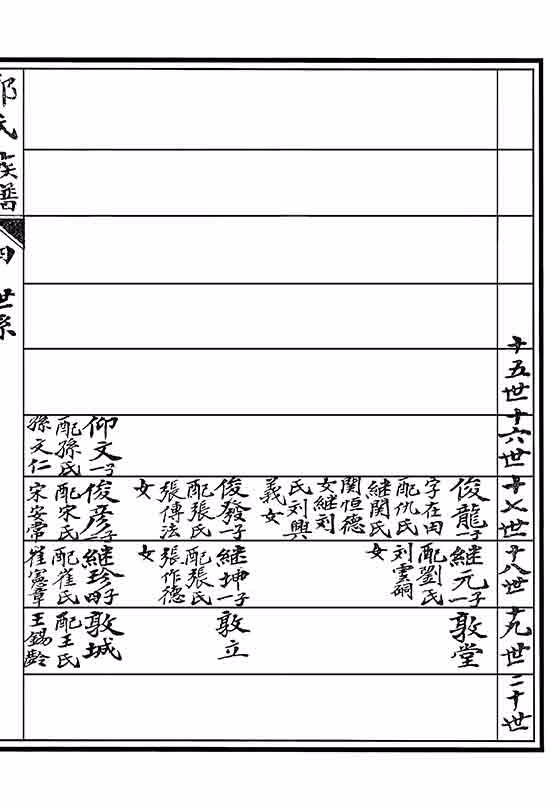 十五世
十六世
十七世
十八世
十九世
二十世
仰文一子
配孫氏
孫文仁
俊龍一子
字在田
配仇氏
継関氏
関恒德
女継刘
氏刘興
義女
俊發一子
配張氏
張傳法
女
俊彦一子
配宋氏
宋安常
継元一子
配劉氏
刘雲嗣
女
継坤一子
配張氏
張作德
女
継珍四子
配崔氏
崔憲章
敦堂
敦立
敦城
配王氏
王錫齡
氏族譜
四世系